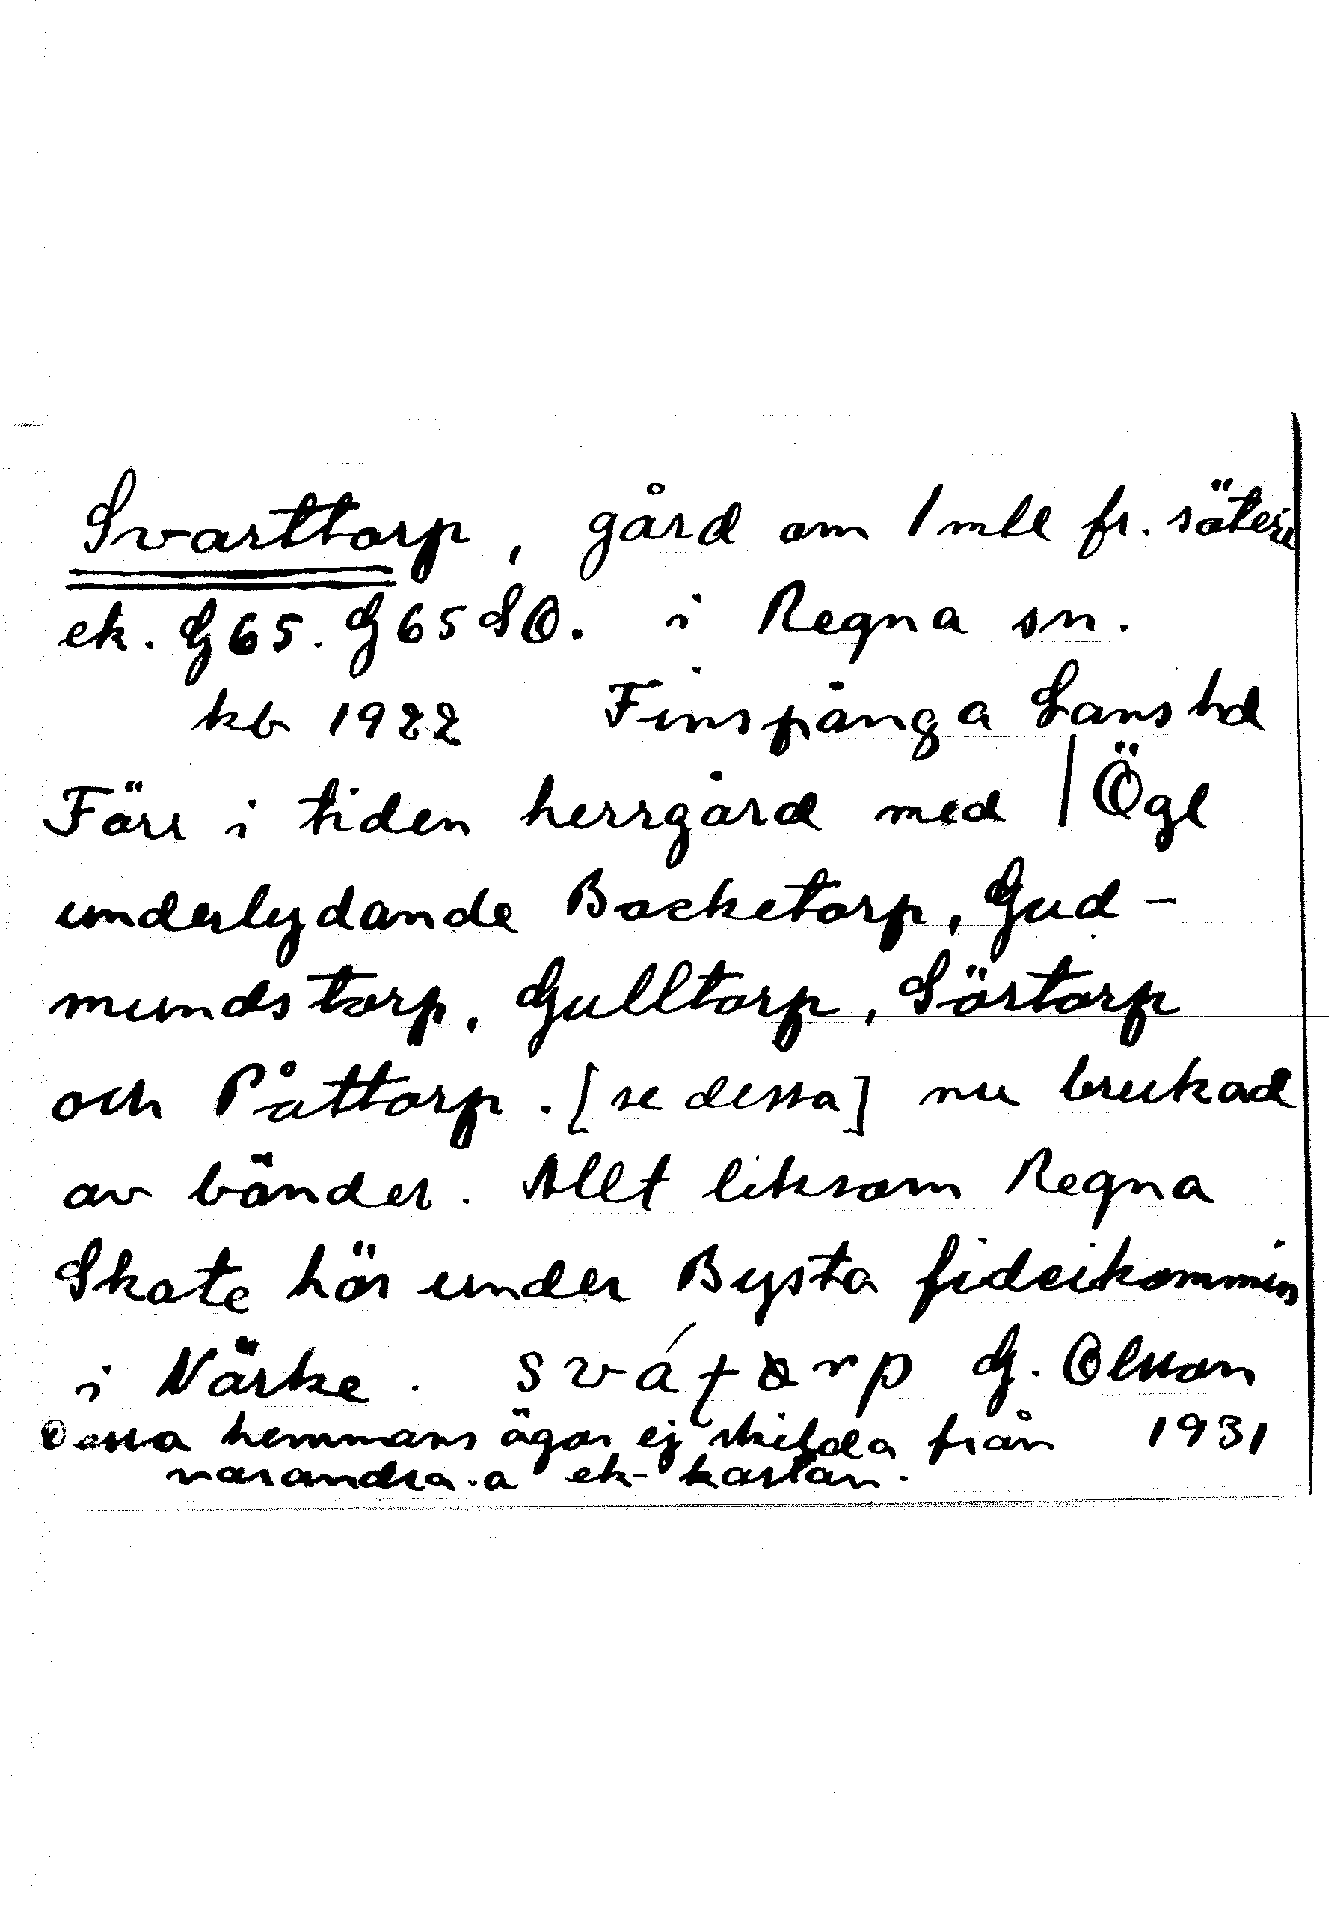 Svarttorp, gård om 1 mtl fr. säteri
ek. G65. G65SO. i Regna sn.
kb 1922 Finspånga Läns hd
Förr i tiden herrgård med | Ögl
underlydande Backetorp, Gud-
mundstorp, Gulltorp, Sörtorp
och Påttorp. [se dessa] nu brukad
av bönder. Allt liksom Regna
Skate hör under Bysta fideikommiss
i Närke. sváțorp G. Olsson
Dessa hemmans ägor ej skilda från 1931
varandra. a ek-kartan.